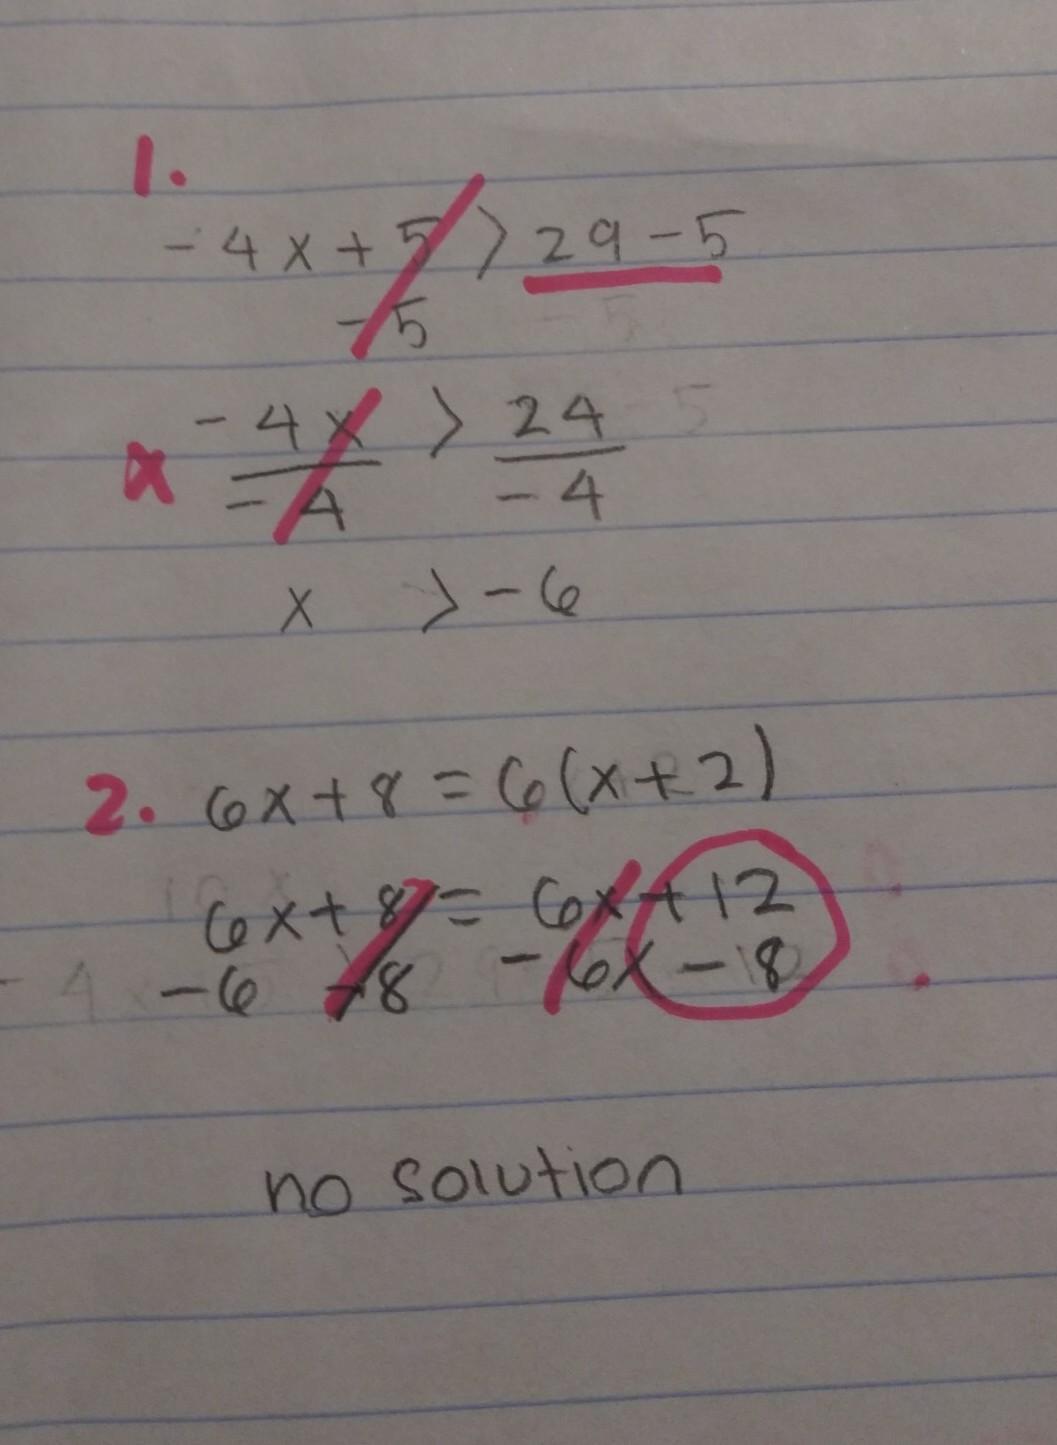 1.
-4x+5 > 29-5
-5
x -4x > 24
-4 -4
x > -6
2. 6x+8 = 6(x+2)
6x+8 = 6x+12
-6 -8 -6x -8
no solution